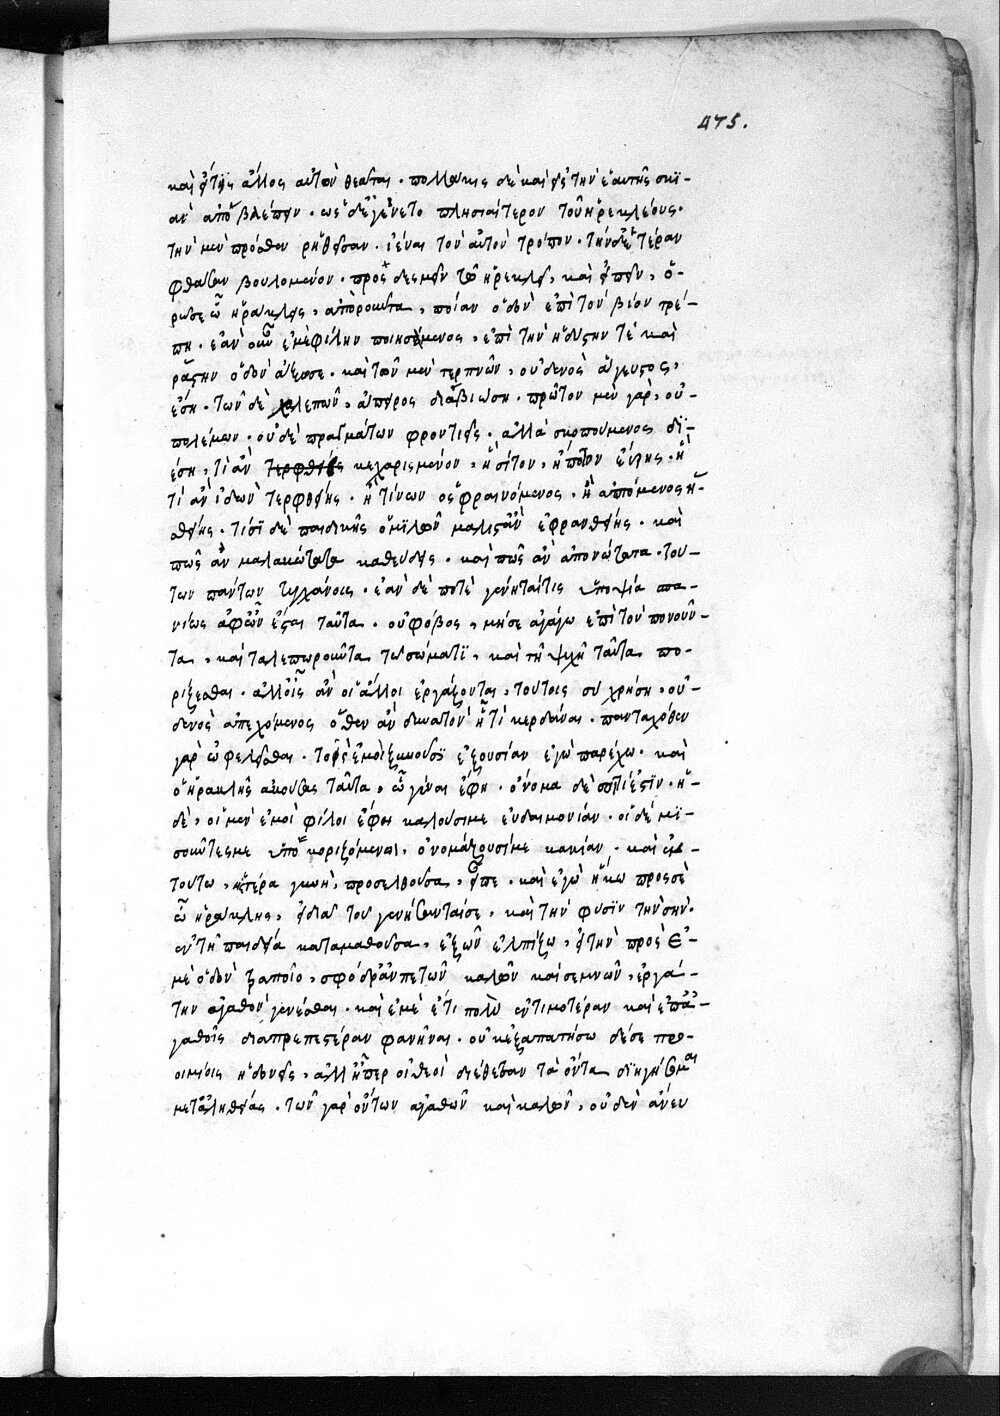 475.
καὶ εἴ τις ἄλλος αὐτὴν θεᾶται · πολλάκις δὲ καὶ εἰς τὴν ἑαυτῆς σκϊ-
ὰν ἀποβλέπειν · ὡς δ' ἐγένετο πλησιαίτερον τοῦ ἡρακλέους ·
τὴν μὲν πρόσθεν ῥηθεῖσαν · ἰέναι τὸν αὐτὸν τρόπον · τὴν δ' ἑτέραν
φθάσαι βουλομένον · προσδραμεῖν τῷ ἡρακλεῖ, καὶ εἰπεῖν, ὅ-
ρῶ σε ὦ ἡράκλεις, ἀποροῦντα, ποίαν ὁδὸν ἐπὶ τὸν βίον τρέ-
πῃ · ἐὰν οὖν ἐμὲ φίλην ποιησάμενος, ἐπὶ τὴν ἡδίστην τὲ καὶ
ῥάστην ὁδὸν ἄξω σε · καὶ τῶν μὲν τερπνῶν, οὐδενὸς ἄγευστος,
ἔσῃ · τῶν δὲ χαλεπῶν, ἄπειρος διαβιώσῃ · πρῶτον μὲν γὰρ, οὐ-
πολέμων · οὐδὲ πραγμάτων φροντιεῖς · ἀλλὰ σκοπούμενος δϊ-
έσῃ, τί ἂν τερφθείης κεχαρισμένον, ἢ σίτον, ἢ ποτὸν εὕρῃς · ἢ
τί ἂν ἰδὼν τερφθείης · ἢ τίνων ὀσφραινόμενος, ἢ ἁπτόμενος ἡ-
σθείης · τίσϊ δὲ παιδικοῖς ὁμϊλῶν μάλιστ' ἂν εὐφρανθείης · καὶ
πῶς ἂν μαλακώτατα καθεύδοις · καὶ πῶς ἂν ἀπονώτατα · τού-
των πάντων τυγχάνοις · ἐὰν δέ ποτε γένηταί τις ὑποψία σπα-
νεως ἀφ' ὧν ἔσται ταῦτα · οὐ φόβος, μή σε ἀγάγω ἐπὶ τὸν πονοῦν-
τα, καὶ ταλαιπωροῦντα τῷ σώματϊ, καὶ τῇ ψυχῇ ταῦτα πο-
ρίζεσθαι · ἀλλ' οἷς ἂν οἱ ἄλλοι ἐργάζονται, τούτοις σὺ χρήσῃ, οὐ-
δενὸς ἀπεχόμενος ὅθεν ἂν δυνατὸν ᾖ τὶ κερδάναι · πανταχόθεν
γὰρ ὠφελεῖσθαι · τοῖς ἐμοὶ ξυνοῦσϊ ἐξουσίαν ἐγὼ παρέχω · καὶ
ὁ ἡρακλῆς ἀκούσας ταῦτα, ὦ γύναι ἔφη · ὄνομα δέ σοι τί ἐστϊν · ἡ-
δὲ, οἱ μὲν ἐμοὶ φίλοι ἔφη καλοῦσί με εὐδαιμονίαν · οἱ δὲ μϊ-
σοῦντές με ὑποκοριζόμενοι, ὀνομάζουσί με κακίαν · καὶ ἐν
τούτῳ, ἡ ἑτέρα γυνὴ, προσελθοῦσα, εἶπε · καὶ ἐγὼ ἥκω πρὸς σὲ
ὦ ἡράκλεις, εἰδυῖα τοὺς γεννήσαντάς σε, καὶ τὴν φύσϊν τὴν σήν ·
ἐν τῇ παιδείᾳ καταμαθοῦσα, ἐξ ὧν ἐλπίζω, εἰ τὴν πρὸς ἐ-
μὲ ὁδὸν τράποιο, σφόδρ' ἄν σε τῶν καλῶν καὶ σεμνῶν, ἐργά-
την ἀγαθὸν γενέσθαι · καὶ ἐμὲ ἔτι πολὺ ἐντιμοτέραν καὶ ἐπ' ἀ-
γαθοῖς διαπρεπεστέραν φανῆναι · οὐκ ἐξαπατήσω δέ σε προ-
οιμίοις ἡδονῆς, ἀλλ' ᾗπερ οἱ θεοὶ διέθεσαν τὰ ὄντα διηγήσομαι
μετ' ἀληθείας · τῶν γὰρ ὄντων ἀγαθῶν καὶ καλῶν, οὐδὲν ἄνευ